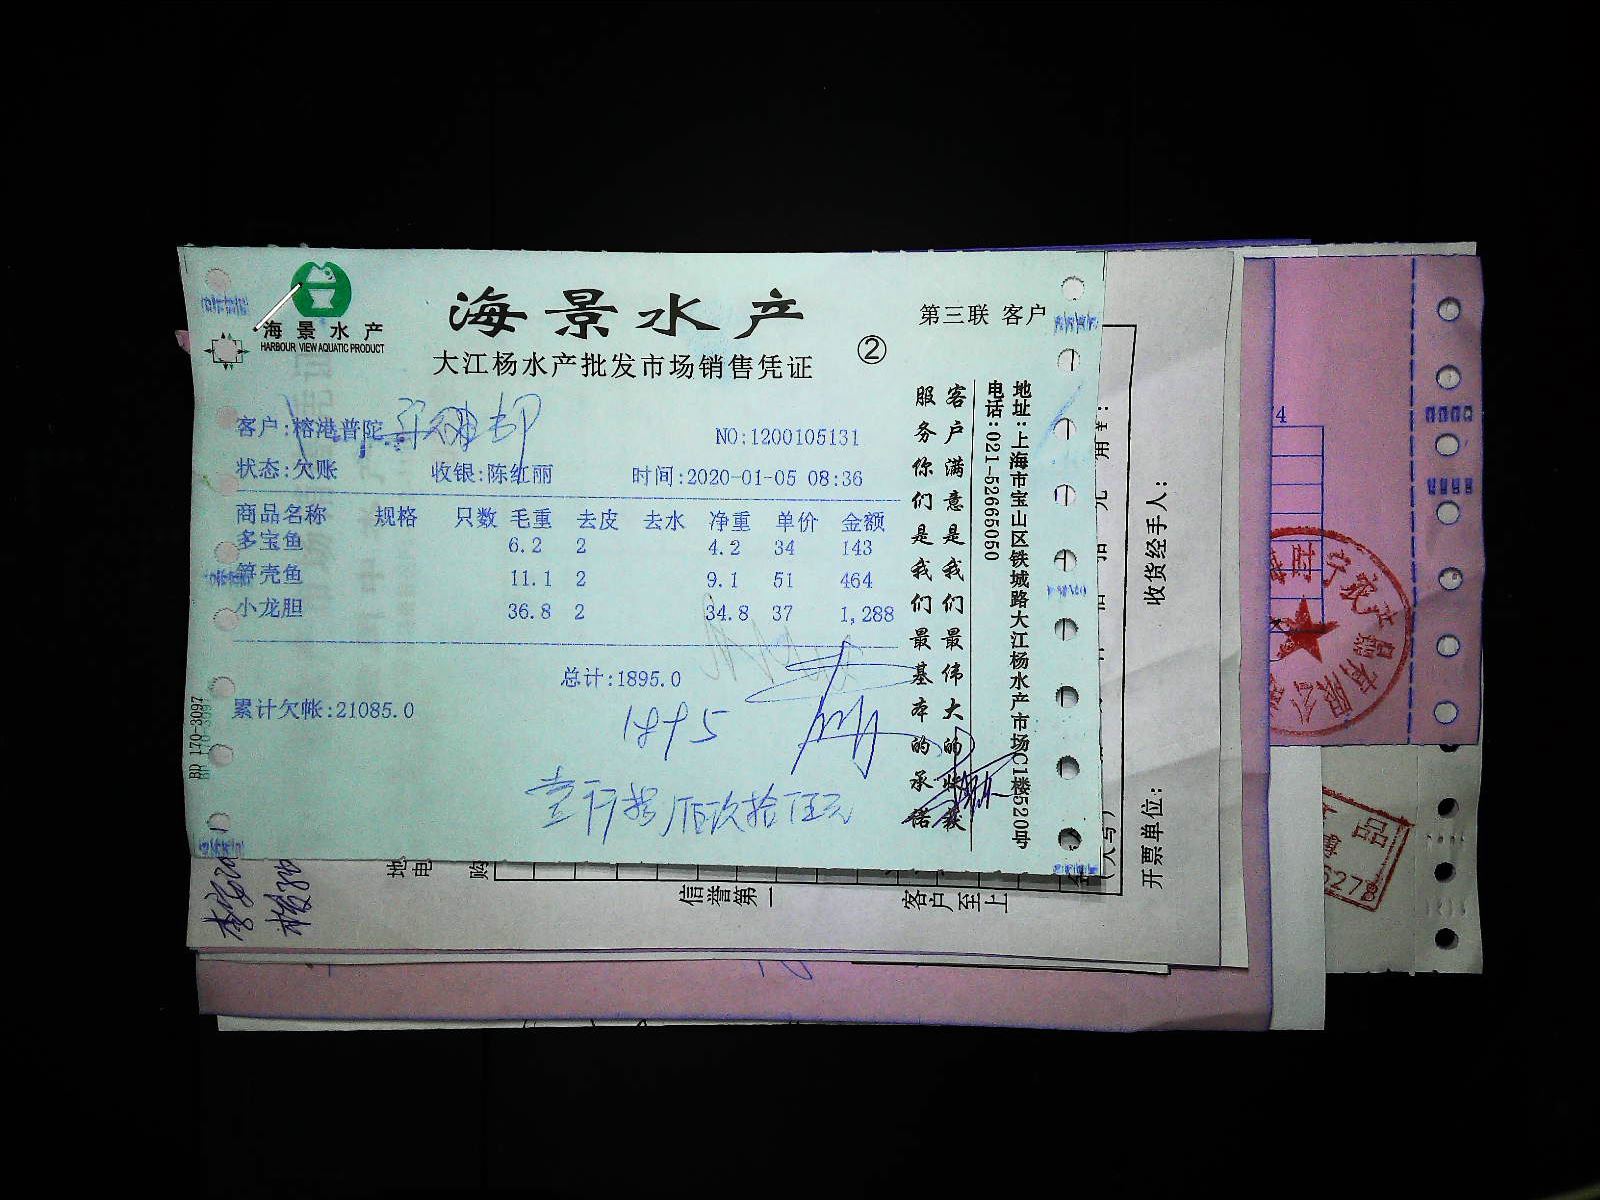 海景水产
HARBOUR VIEW AQUATIC PRODUCT
海景水产
大江杨水产批发市场销售凭证
②
第三联 客户
客户:榕港普陀
NO:1200105131
状态:欠账 收银:陈红丽 时间:2020-01-05 08:36
商品名称 规格 只数 毛重 去皮 去水 净重 单价 金额
多宝鱼 6.2 2 4.2 34 143
笋壳鱼 11.1 2 9.1 51 464
小龙胆 36.8 2 34.8 37 1,288
总计:1895.0
累计欠帐:21085.0
1895
壹仟捌佰玖拾伍元
客户满意是我们最伟大的收获
服务你们是我们最基本的承诺
地址:上海市宝山区铁城路大江杨水产市场C1楼520号
电话:021-52665050
BD 170-3097
收货经手人:
开票单位:
信誉第一
客户至上
地
电
购
74